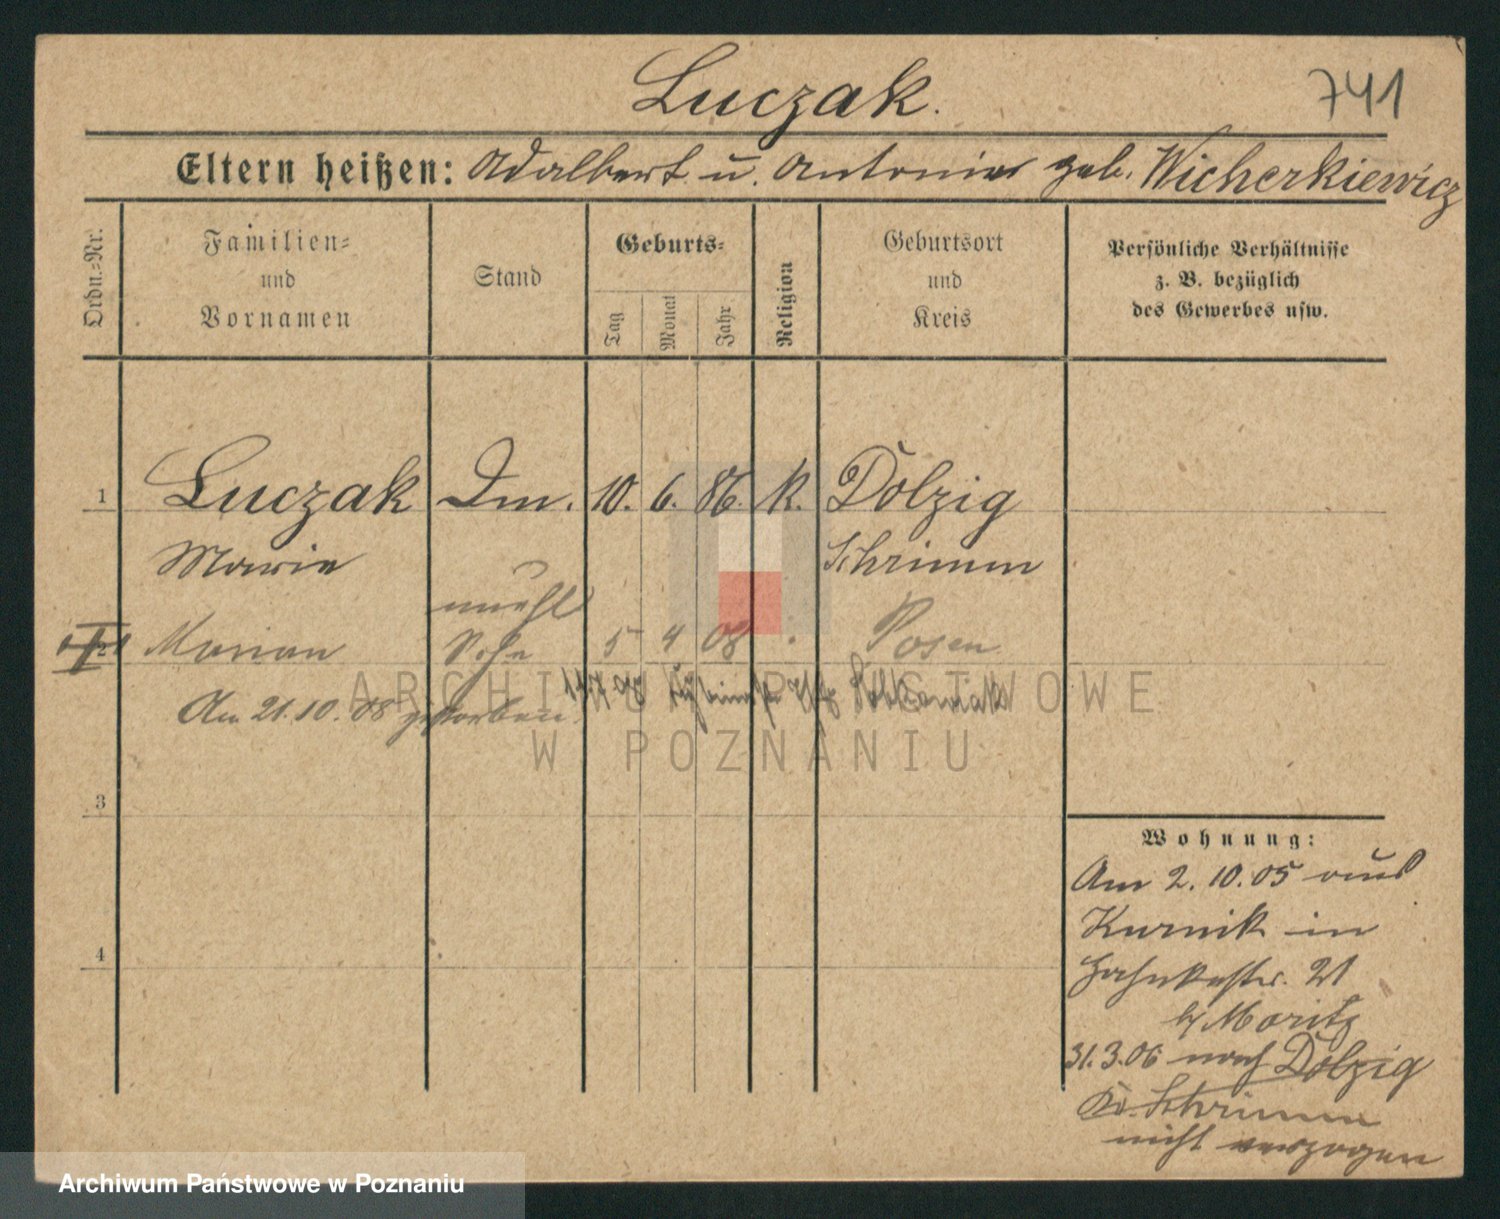 Luczak.
741
Eltern heißen: Adalbert u. Antonie geb. Wicherkiewicz
Ordn.-Nr.
Familien-
und
Vornamen
Stand
Geburts-
Tag
Monat
Jahr
Religion
Geburtsort
und
Kreis
Persönliche Verhältnisse
z. B. bezüglich
des Gewerbes usw.
1 Luczak Dm. 10. 6. 86. k. Dolzig
Marie Schrimm
unehl
2 Marian Sohn 5 4 08 Posen
Am 21.10.08 gestorben
3
4
Wohnung:
Am 2.10.05 aus
Kurnik in
21
b/ Moritz
31.3.06 nach Dolzig
Kr. Schrimm
nicht verzogen
ARCHIWUM PAŃSTWOWE
W POZNANIU
Archiwum Państwowe w Poznaniu